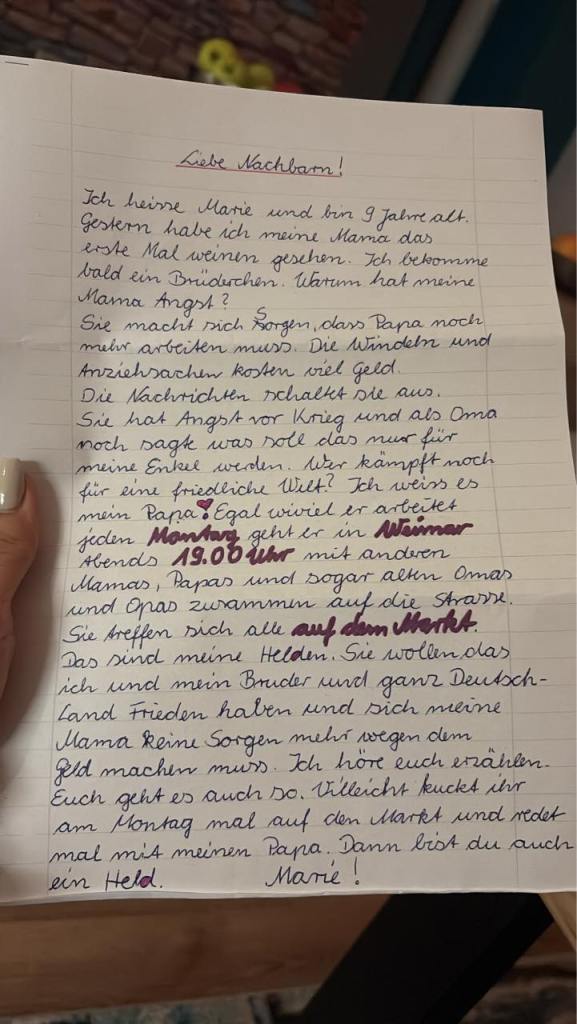 Liebe Nachbarn!
Ich heisse Marie und bin 9 Jahre alt.
Gestern habe ich meine Mama das
erste Mal weinen gesehen. Ich bekomme
bald ein Brüderchen. Warum hat meine
Mama Angst?
Sie macht sich Sorgen, dass Papa noch
mehr arbeiten muss. Die Windeln und
Anziehsachen kosten viel Geld.
Die Nachrichten schaltet sie aus.
Sie hat Angst vor Krieg und als Oma
noch sagte was soll das nur für
meine Enkel werden. Wer kämpft noch
für eine friedliche Welt? Ich weiss es
mein Papa! Egal wiviel er arbeitet
jeden Montag geht er in Weimar
Abends 19.00 Uhr mit anderen
Mamas, Papas und sogar alten Omas
und Opas zusammen auf die Strasse.
Sie treffen sich alle auf dem Markt.
Das sind meine Helden. Sie wollen das
ich und mein Bruder und ganz Deutsch-
Land Frieden haben und sich meine
Mama keine Sorgen mehr wegen dem
Geld machen muss. Ich höre euch erzählen.
Euch geht es auch so. Villeicht kuckt ihr
am Montag mal auf den Markt und redet
mal mit meinen Papa. Dann bist du auch
ein Held. Marie!